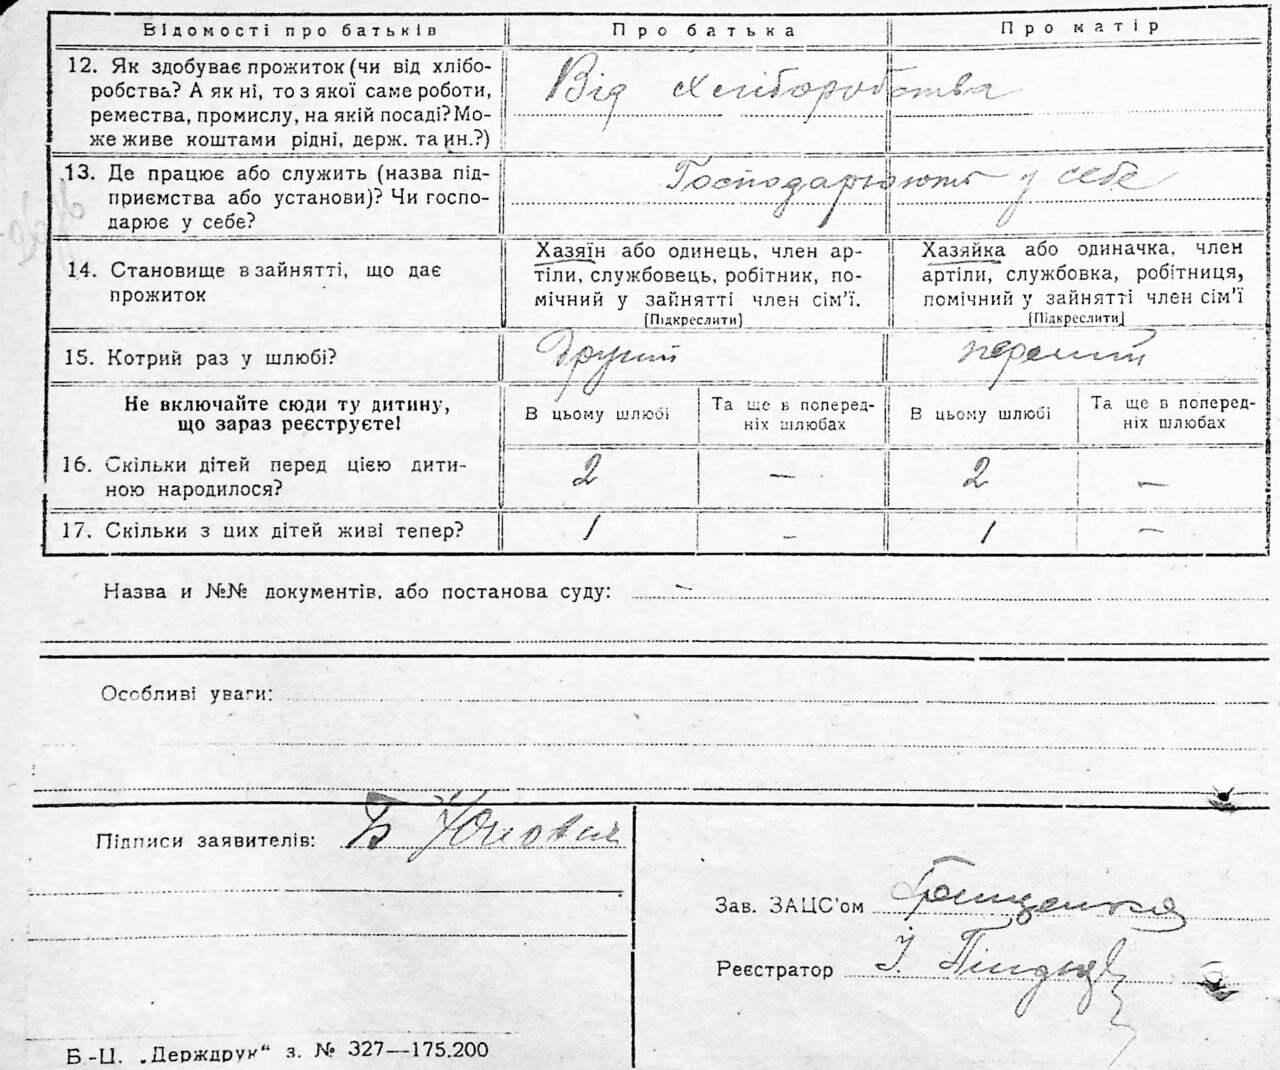 Відомості про батьків Про батька Про матір
12. Як здобуває прожиток (чи від хлібо-
робства? А як ні, то з якої саме роботи,
ремества, промислу, на якій посаді? Мо-
же живе коштами рідні, держ. та ин.?)
Від хліборобства
13. Де працює або служить (назва під-
приємства або установи)? Чи госпо-
дарює у себе?
Господарюють у себе
14. Становище в зайнятті, що дає
прожиток
Хазяїн або одинець, член ар-
тіли, службовець, робітник, по-
мічний у зайнятті член сім'ї.
[Підкреслити]
Хазяйка або одиначка, член
артіли, службовка, робітниця,
помічний у зайнятті член сім'ї
[Підкреслити]
15. Котрий раз у шлюбі? Другий перший
Не включайте сюди ту дитину,
що зараз реєструєте!
В цьому шлюбі
Та ще в поперед-
ніх шлюбах
В цьому шлюбі
Та ще в поперед-
ніх шлюбах
16. Скільки дітей перед цією дити-
ною народилося?
2 — 2 —
17. Скільки з цих дітей живі тепер? 1 - 1 —
Назва и №№ документів, або постанова суду: —
Особливі уваги:
Підписи заявителів:
Зав. ЗАЦС'ом
Реєстратор І.
Б-Ц. „Держдрук“ з. № 327—175.200